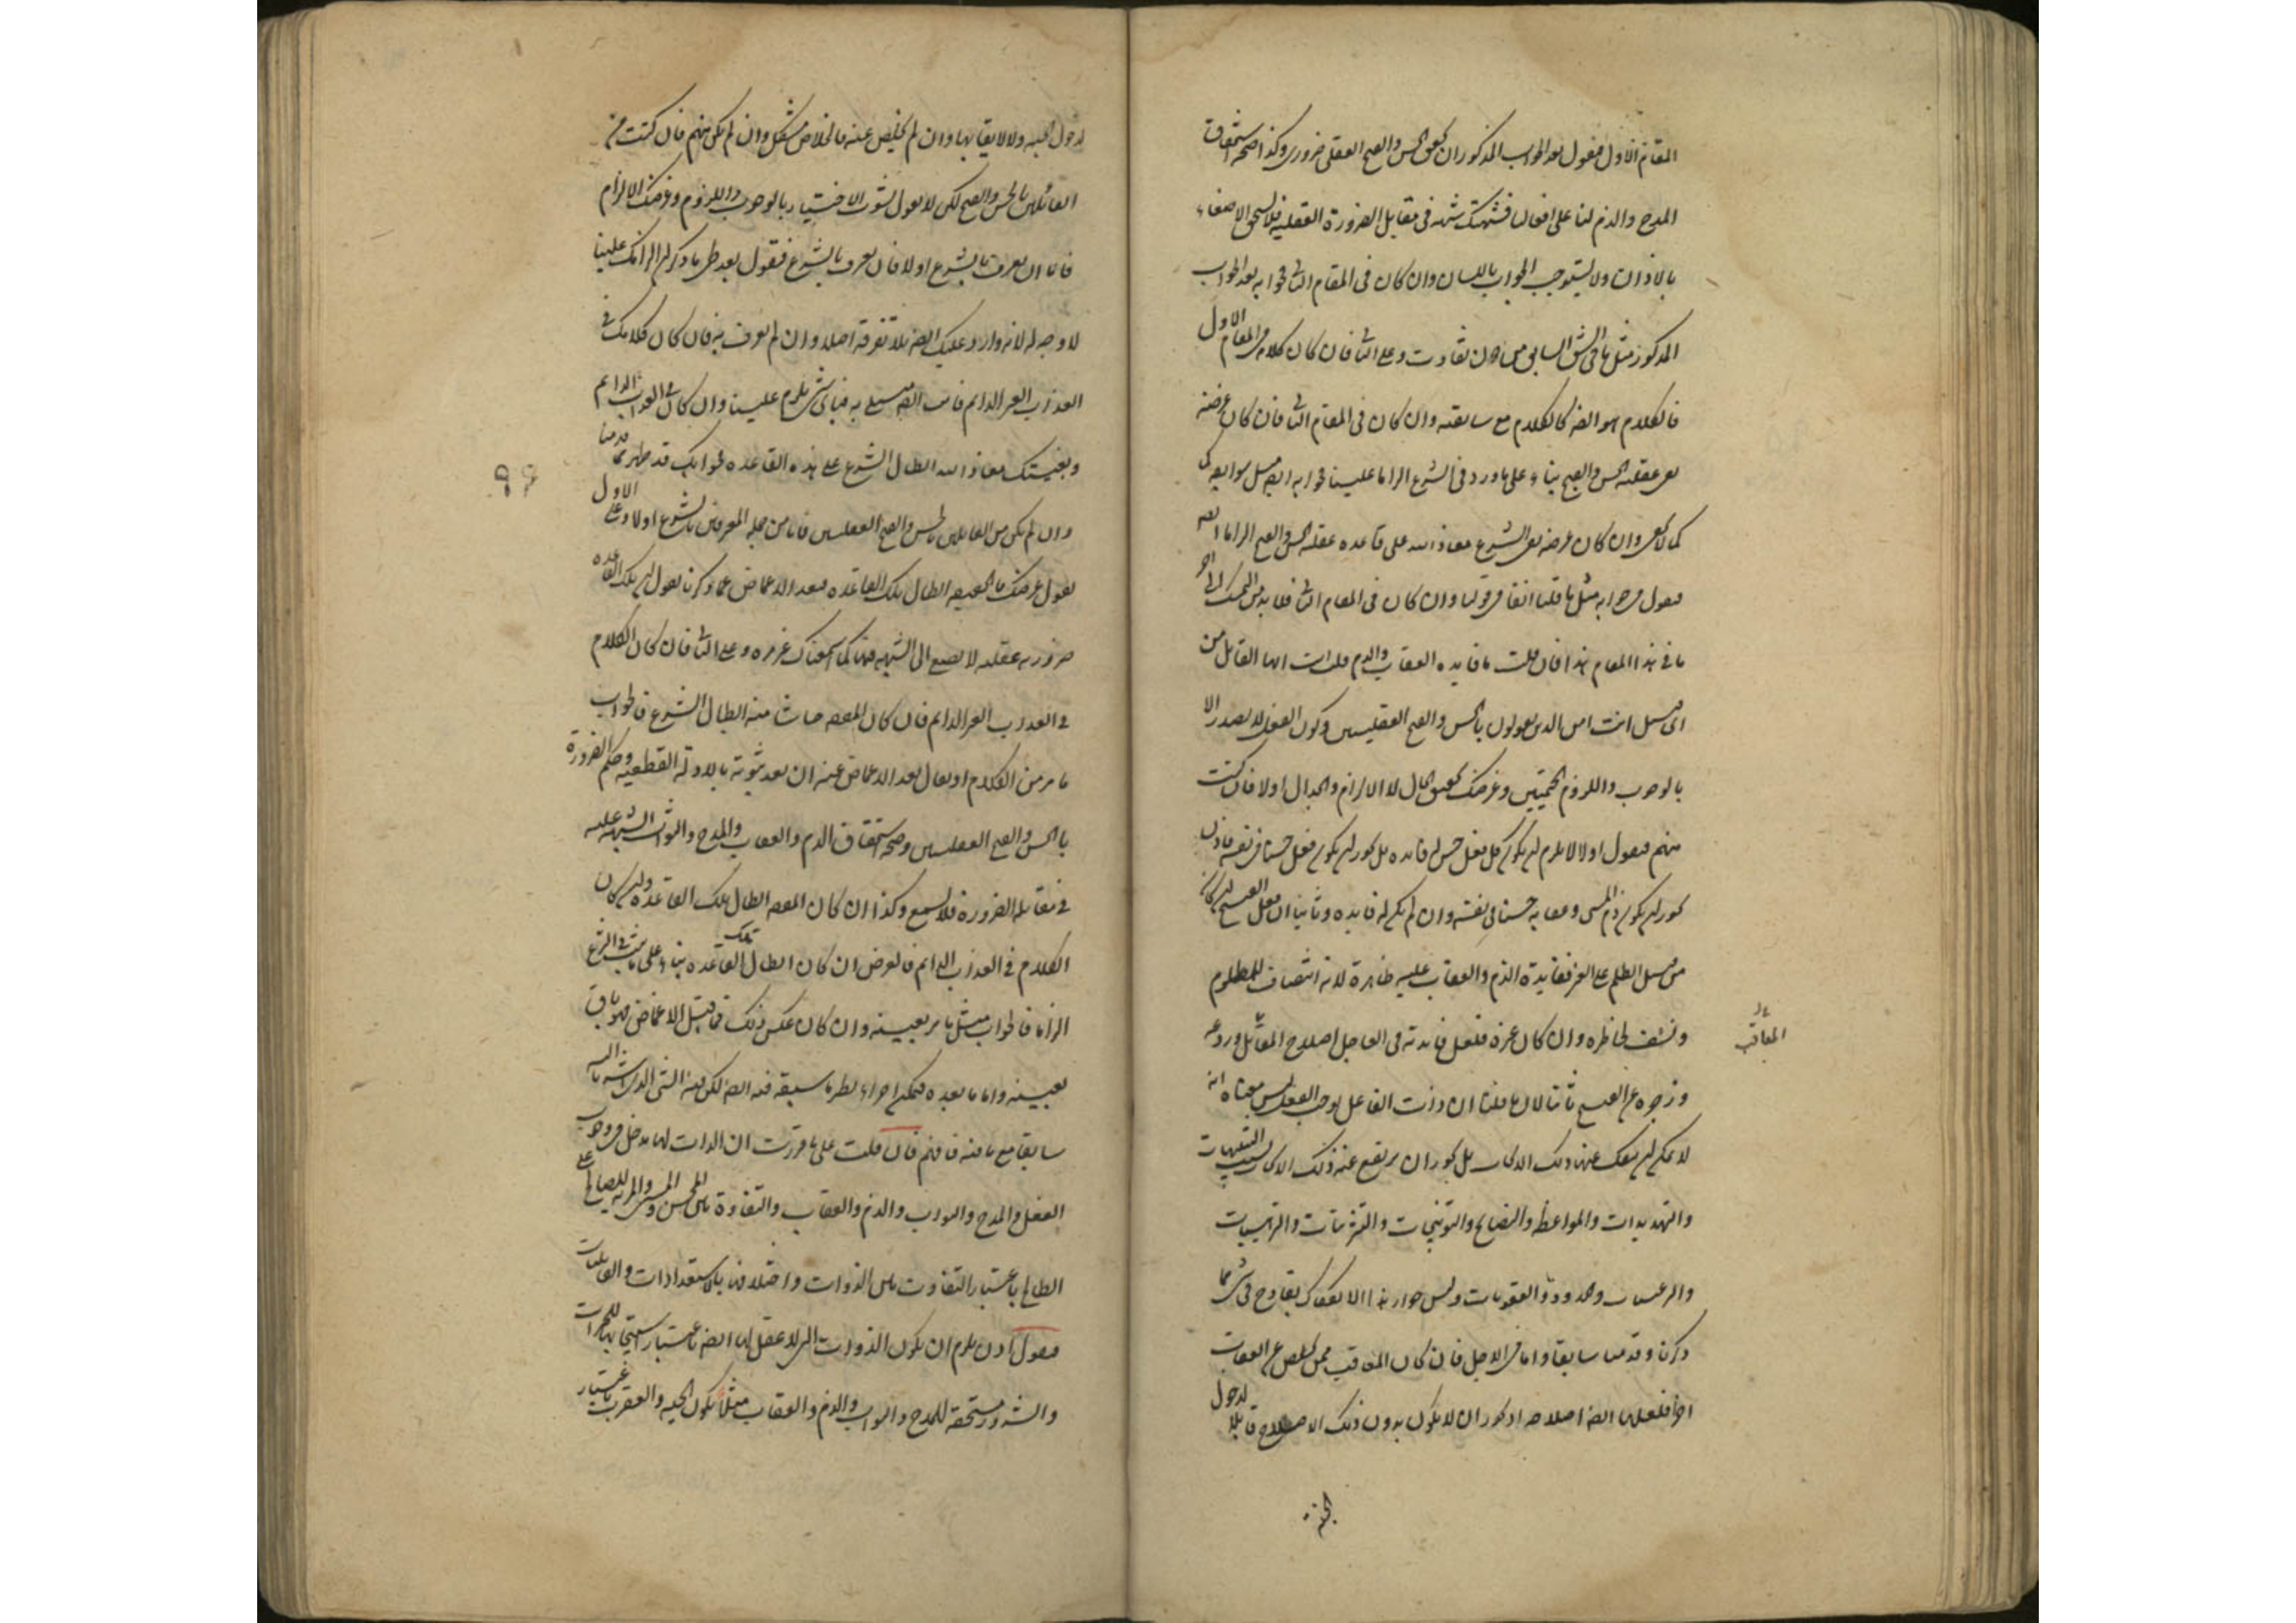 المقام الاول فنقول بعد الجواب المذكور ان تحقق الحسن والقبح العقلى ضرورى وكذا صحة استحقاق
المدح والذم لنا على افعالنا فشبهتك شبهة فى مقابل الضرورة العقلية فلا يستحق الاصغاء
بالاذان ولا يستوجب الجواب باللسان وان كان فى المقام الثانى فجوابه بعد الجواب
المذكور مثل ما فى الشق السابق من دون تفاوت وعلى الثانى فان كان كلامه فى المقام الاول
فالكلام هو ايضا كالكلام مع سابقته وان كان فى المقام الثانى فان كان غرضه
نفى عقلية الحسن والقبح بناء على ما ورد فى الشرع الزاما علينا فجوابه ايضا مثل سوابقه
كما لا يخفى وان كان غرضه نفى الشرع معاذ الله على قاعدة عقلية الحسن والقبح الزاما ايضا
فنقول فى جوابه مثل ما قلنا انفا فى قولنا وان كان فى المقام الثانى فلا بد من التمسك الى اخر
ما فى هذا المقام هذا فان قلت ما فايدة العقاب والذم قلت ايها القائل من
اى قبيل انت امن الذين يقولون بالحسن والقبح العقليين وكون الفعل لا يصدر الا
بالوجوب واللزوم الحتميين وغرضك تحقيق الحال لا الالزام والجدال اولا فان كنت
منهم فنقول اولا لا يلزم ان يكون كل فعل حسن له فايدة بل يجوز ان يكون فعل حسنا فى نفسه فاذن
يجوز ان يكون ذم المسى وعقابه حسنا فى نفسه وان لم يكن له فايدة وثانيا ان فعل القبيح ان كان
من قبيل الظلم على الغير ففايدة الذم والعقاب عليه ظاهرة لانه انتصاف للمظلوم
وتشف لخاطره وان كان غيره فلعل فايدته فى العاجل اصلاح المقاتل وردعه
المعاقب
وزجره عن القبيح ثانيا لان ما قلنا ان ذات الفاعل يوجب الفعل ليس معناه انه
لا يمكن ان ينفك عنها ذلك الايجاب بل يجوز ان يرتفع عنه ذلك الايجاب بسبب التنبيهات
والتهديدات والمواعظ والنصايح والتوبيخات والتقريعات والترهيبات
والترغيبات وحدود العقوبات وليس جواز هذا الانفكاك بقادح فى شى مما
ذكرنا وقدمنا سابقا واما فى الاجل فان كان المعاقب ممن يخلص عن العقاب
اخرا فلعلها ايضا اصلاحه اذ يجوز ان لا يكون بدون ذلك الاصلاح قابلا لدخول
الجنة
لدخول الجنة ولا لايقا بها وان لم يخلص عنه فالخلاص مشكل وان لم يكن منهم فان كنت من
القائلين بالحسن والقبح لكن لا تقول بثبوت الاختيار بالوجوب واللزوم وغرضك الالزام
فاما ان تعرف بالشرع اولا فان تعرف بالشرع فنقول بعد طى ما ذكر ان الزامك علينا
لا وجه له لانه وارد عليك ايضا بلا تفرقة اصلا وان لم تعرف به فان كان كلامك فى
العذاب الغير الدائم فانت ايضا مبتلى به فباى شى يلزم علينا وان كان فى العذاب الدائم
وبغيتك معاذ الله ابطال الشرع على هذه القاعدة فجوابك قد ظهر مما قدمنا
وان لم تكن من القائلين بالحسن والقبح العقليين فاما من جملة المعرفين بالشرع اولا وعلى الاول
نقول غرضك بالحقيقة ابطال تلك القاعدة فبعد الاغماض عما ذكرنا نقول ان تلك القاعدة
ضرورية عقلية لا نصغى الى الشبهة فيها كما اسمعناك غير مرة وعلى الثانى فان كان الكلام
فى العذاب الغير الدائم فان كان المقصود حاشا منه ابطال الشرع فالجواب
ما مر من الكلام او يقال بعد الاغماض عنه ان بعد ثبوته بالادلة القطعية وحكم الضرورة
بالحسن والقبح العقليين وصحة استحقاق الذم والعقاب والمدح والثواب الشبهة عليه
فى مقابلة الضرورة فلا تسمع وكذا ان كان المقصود ابطال تلك القاعدة وان كان
الكلام فى العذاب الدائم فالغرض ان كان ابطال تلك القاعدة بناء على ما ثبت فى الشرع
الزاما فالجواب مثل ما مر بعينه وان كان عكس ذلك فما قبل الاغماض فهو باق
بعينه واما ما بعده فيمكن اجراء نظير ما سبق فيه ايضا لكن فيه الشى الذى اشرنا اليه
سابقا مع ما فيه فافهم فان قلت على ما قررت ان الذات لها مدخل فى وجوب
الفعل والمدح والثواب والذم والعقاب والتفاوت بين المحسن والمسى والمزية للصالح على
الطالح باعتبار التفاوت بين الذوات واختلافها بالاستعدادات والقابليات
فنقول اذن يلزم ان يكون الذوات التى لا عقل لها ايضا باعتبار استتباعها للخيرات
والشرور مستحقة للمدح والثواب والذم والعقاب مثلا يكون الحية والعقرب باعتبار